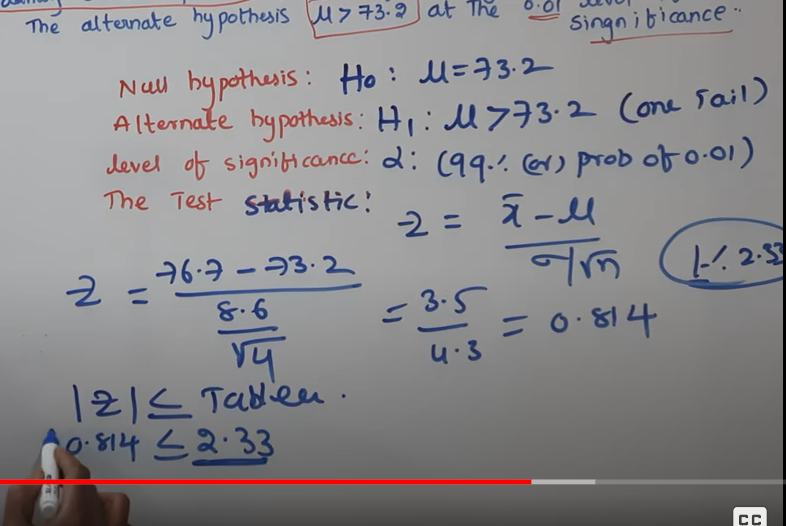 The alternate hypothesis μ > 73.2 at the 0.01
singnificance..
Null hypothesis: H0: μ = 73.2
Alternate hypothesis: H1: μ > 73.2 (one Tail)
level of significance: α: (99.% (or) prob of 0.01)
The Test Statistic:
z = x̄ - μ / σ/√n
1% 2.33
z = 76.7 - 73.2 / 8.6/√4 = 3.5/4.3 = 0.814
|z| ≤ Table
0.814 ≤ 2.33
CC